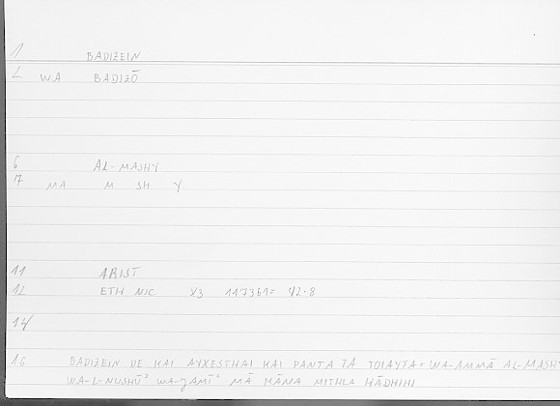 1 BADIZEIN
2 WA BADIZŌ
6 AL-MASHY
7 MA M SH Y
11 ARIST
12 ETH NIC 43 1173b1= 42.8
14
16 BADIZEIN DE KAI AYXESTHAI KAI PANTA TA TOIAYTA= WA-AMMĀ AL-MASHY
WA-L-NUSHŪ' WA-JAMĪ' MĀ KĀNA MITHLA HĀDHIHI